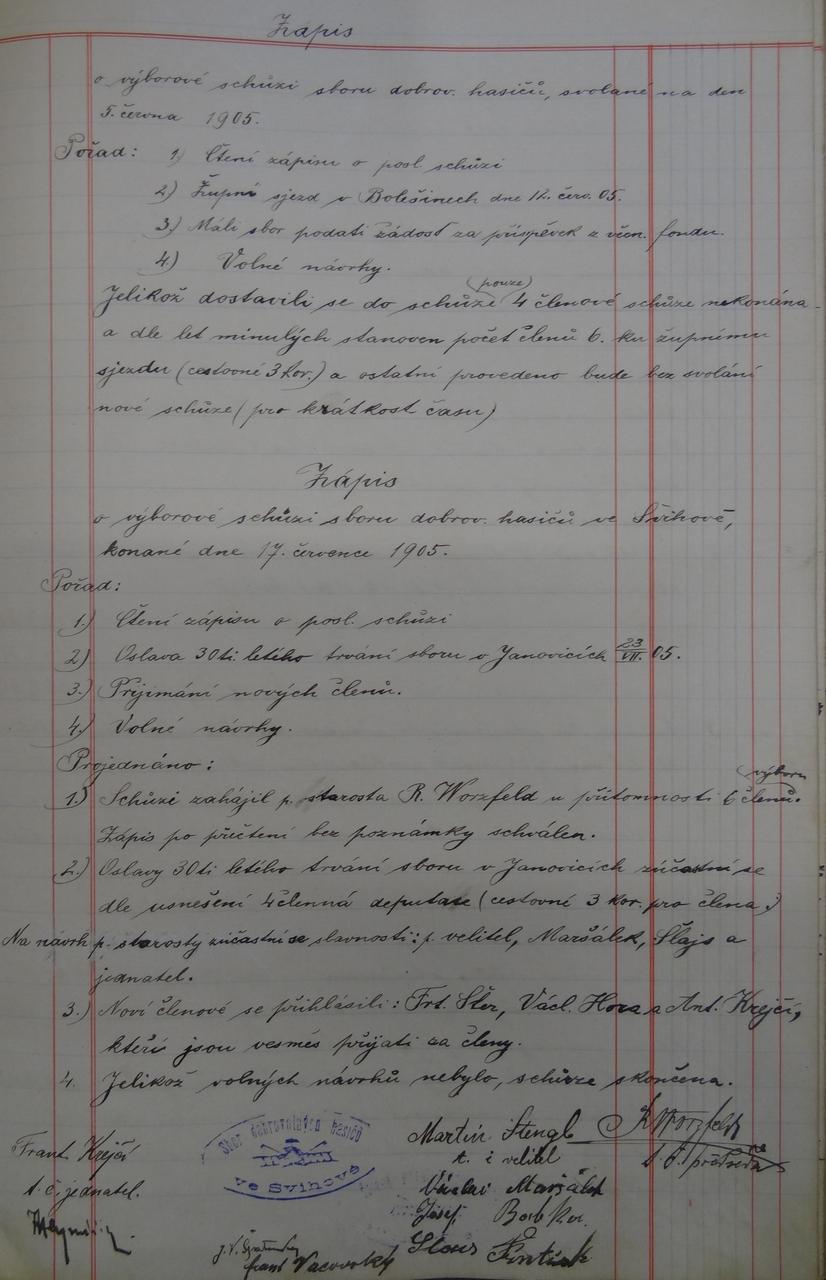 Zápis
o výborové schůzi sboru dobrov. hasičů, svolané na den
5. června 1905.
Pořad: 1) Čtení zápisu o posl. schůzi
2) Župní sjezd v Bolešinech dne 12. červ. 05.
3.) Máli sbor podati žádost za příspěvek z věčn. fondu.
4) Volné návrhy.
(pouze)
Jelikož dostavili se do schůze 4 členové schůze nekonána
a dle let minulých stanoven počet členů 6. ku župnímu
sjezdu (cestovné 3 Kor.) a ostatní provedeno bude bez svolání
nové schůze (pro krátkost času)
Zápis
o výborové schůzi sboru dobrov. hasičů ve Švihově,
konané dne 17. července 1905.
Pořad:
1.) Čtení zápisu o posl. schůzi
2) Oslava 30ti letého trvání sboru v Janovicích 23/VII. 05.
3.) Přijímání nových členů.
4.) Volné návrhy.
Projednáno:
výboru
1.) Schůzi zahájil p. starosta R. Worzfeld u přítomnosti 6 členů.
Zápis po přečtení bez poznámky schválen.
2.) Oslavy 30ti letého trvání sboru v Janovicích zúčastní se
dle usnešení 4členná deputace (cestovné 3 kor. pro člena.)
Na návrh p. starosty zúčastní se slavnosti: p. velitel, Maršálek, Šlajs a
jednatel.
3.) Noví členové se přihlásili: Frt. Šter, Václ. Hora a Ant. Krejčí,
kteří jsou vesměs přijati za členy.
4. Jelikož volných návrhů nebylo, schůze skončena.
Frant Krejčí
t. č. jednatel.
Sbor dobrovolných hasičů
ve Švihově
Martin Stengl
t. č velitel
R Worzfeld
t. č. předseda
Václav Maršálek
Josef
Frant Vacovský